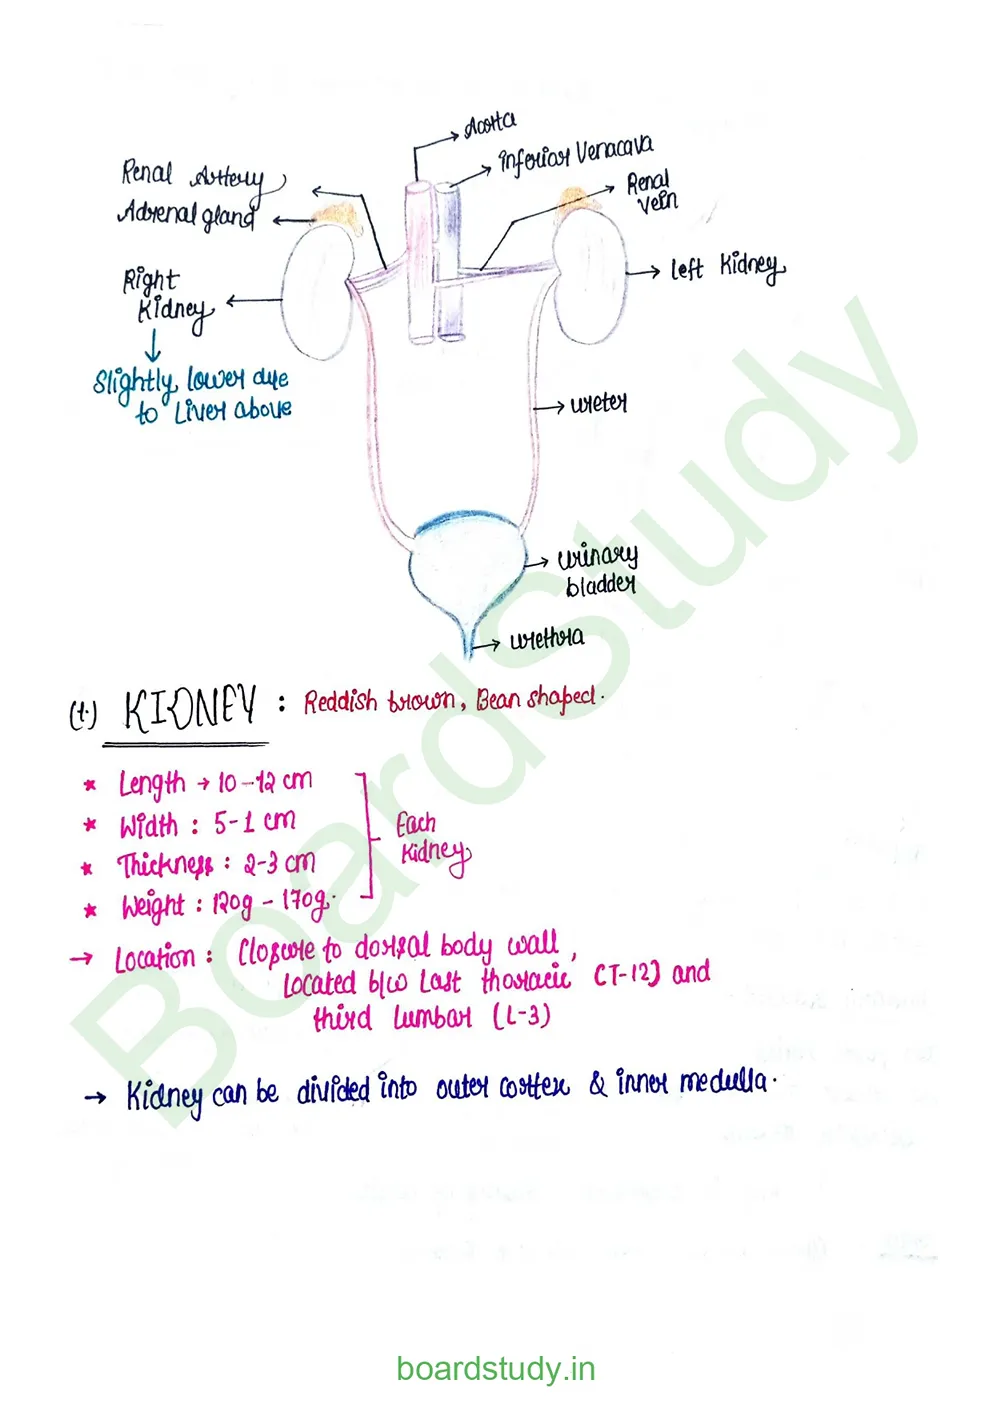 Aorta
Inferior Venacava
Renal Artery
Renal
vein
Adrenal gland
left Kidney
Right
Kidney
Slightly lower due
to Liver above
ureter
urinary
bladder
urethra
(1.) KIDNEY : Reddish brown, Bean shaped.
* Length → 10-12 cm
* Width : 5-1 cm
Each
Kidney
* Thickness : 2-3 cm
* Weight : 120g - 170g.
→ Location : Closure to dorsal body wall,
Located b/w Last thoracic (T-12) and
third Lumbar (L-3)
→ Kidney can be divided into outer cortex & inner medulla.
BoardStudy
boardstudy.in